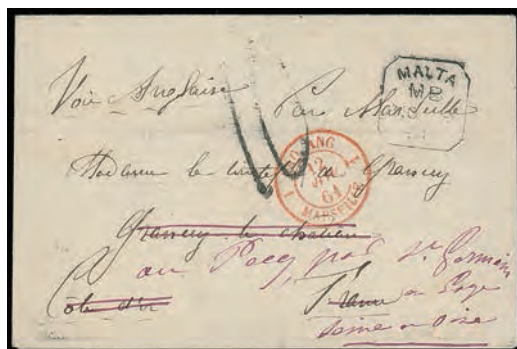 Voie Anglaise Par Marseille
MALTA
MB
Madame la Comtesse de Grancey
ANG
12
61
MARSEILLE
Grancey le chateau
au Pecq, par St Germain
Côte d'or France en Laye
Seine et Oise